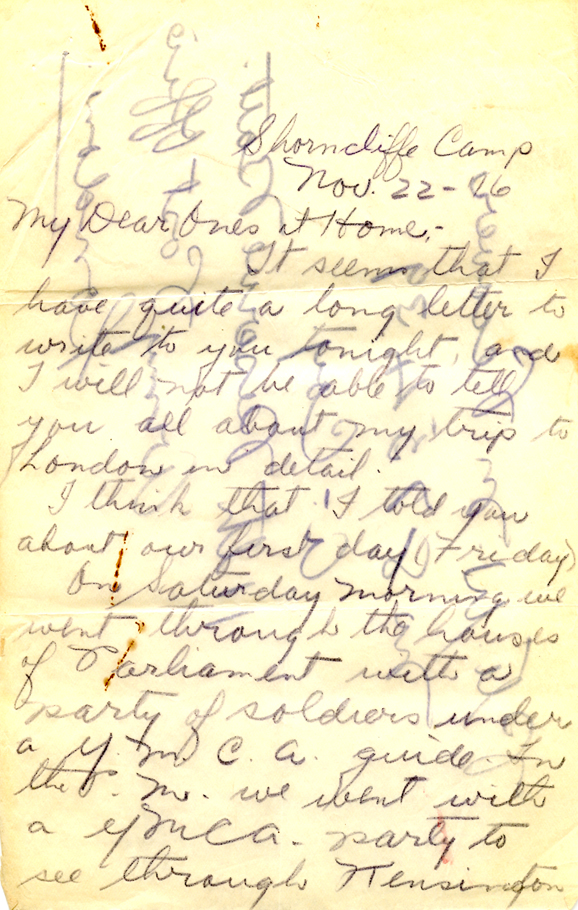 Shorncliffe Camp
Nov. 22-16
My Dear Ones at Home;-
It seems that I
have quite a long letter to
write to you tonight, and
I will not be able to tell
you all about my trip to
London in detail.
I think that I told you
about our first day (Friday)
On Saturday morning we
went through the houses
of Parliament with a
party of soldiers under
a Y. M. C. A. guide. In
the P. M. we went with
a YMCA. party to
see through Kensington